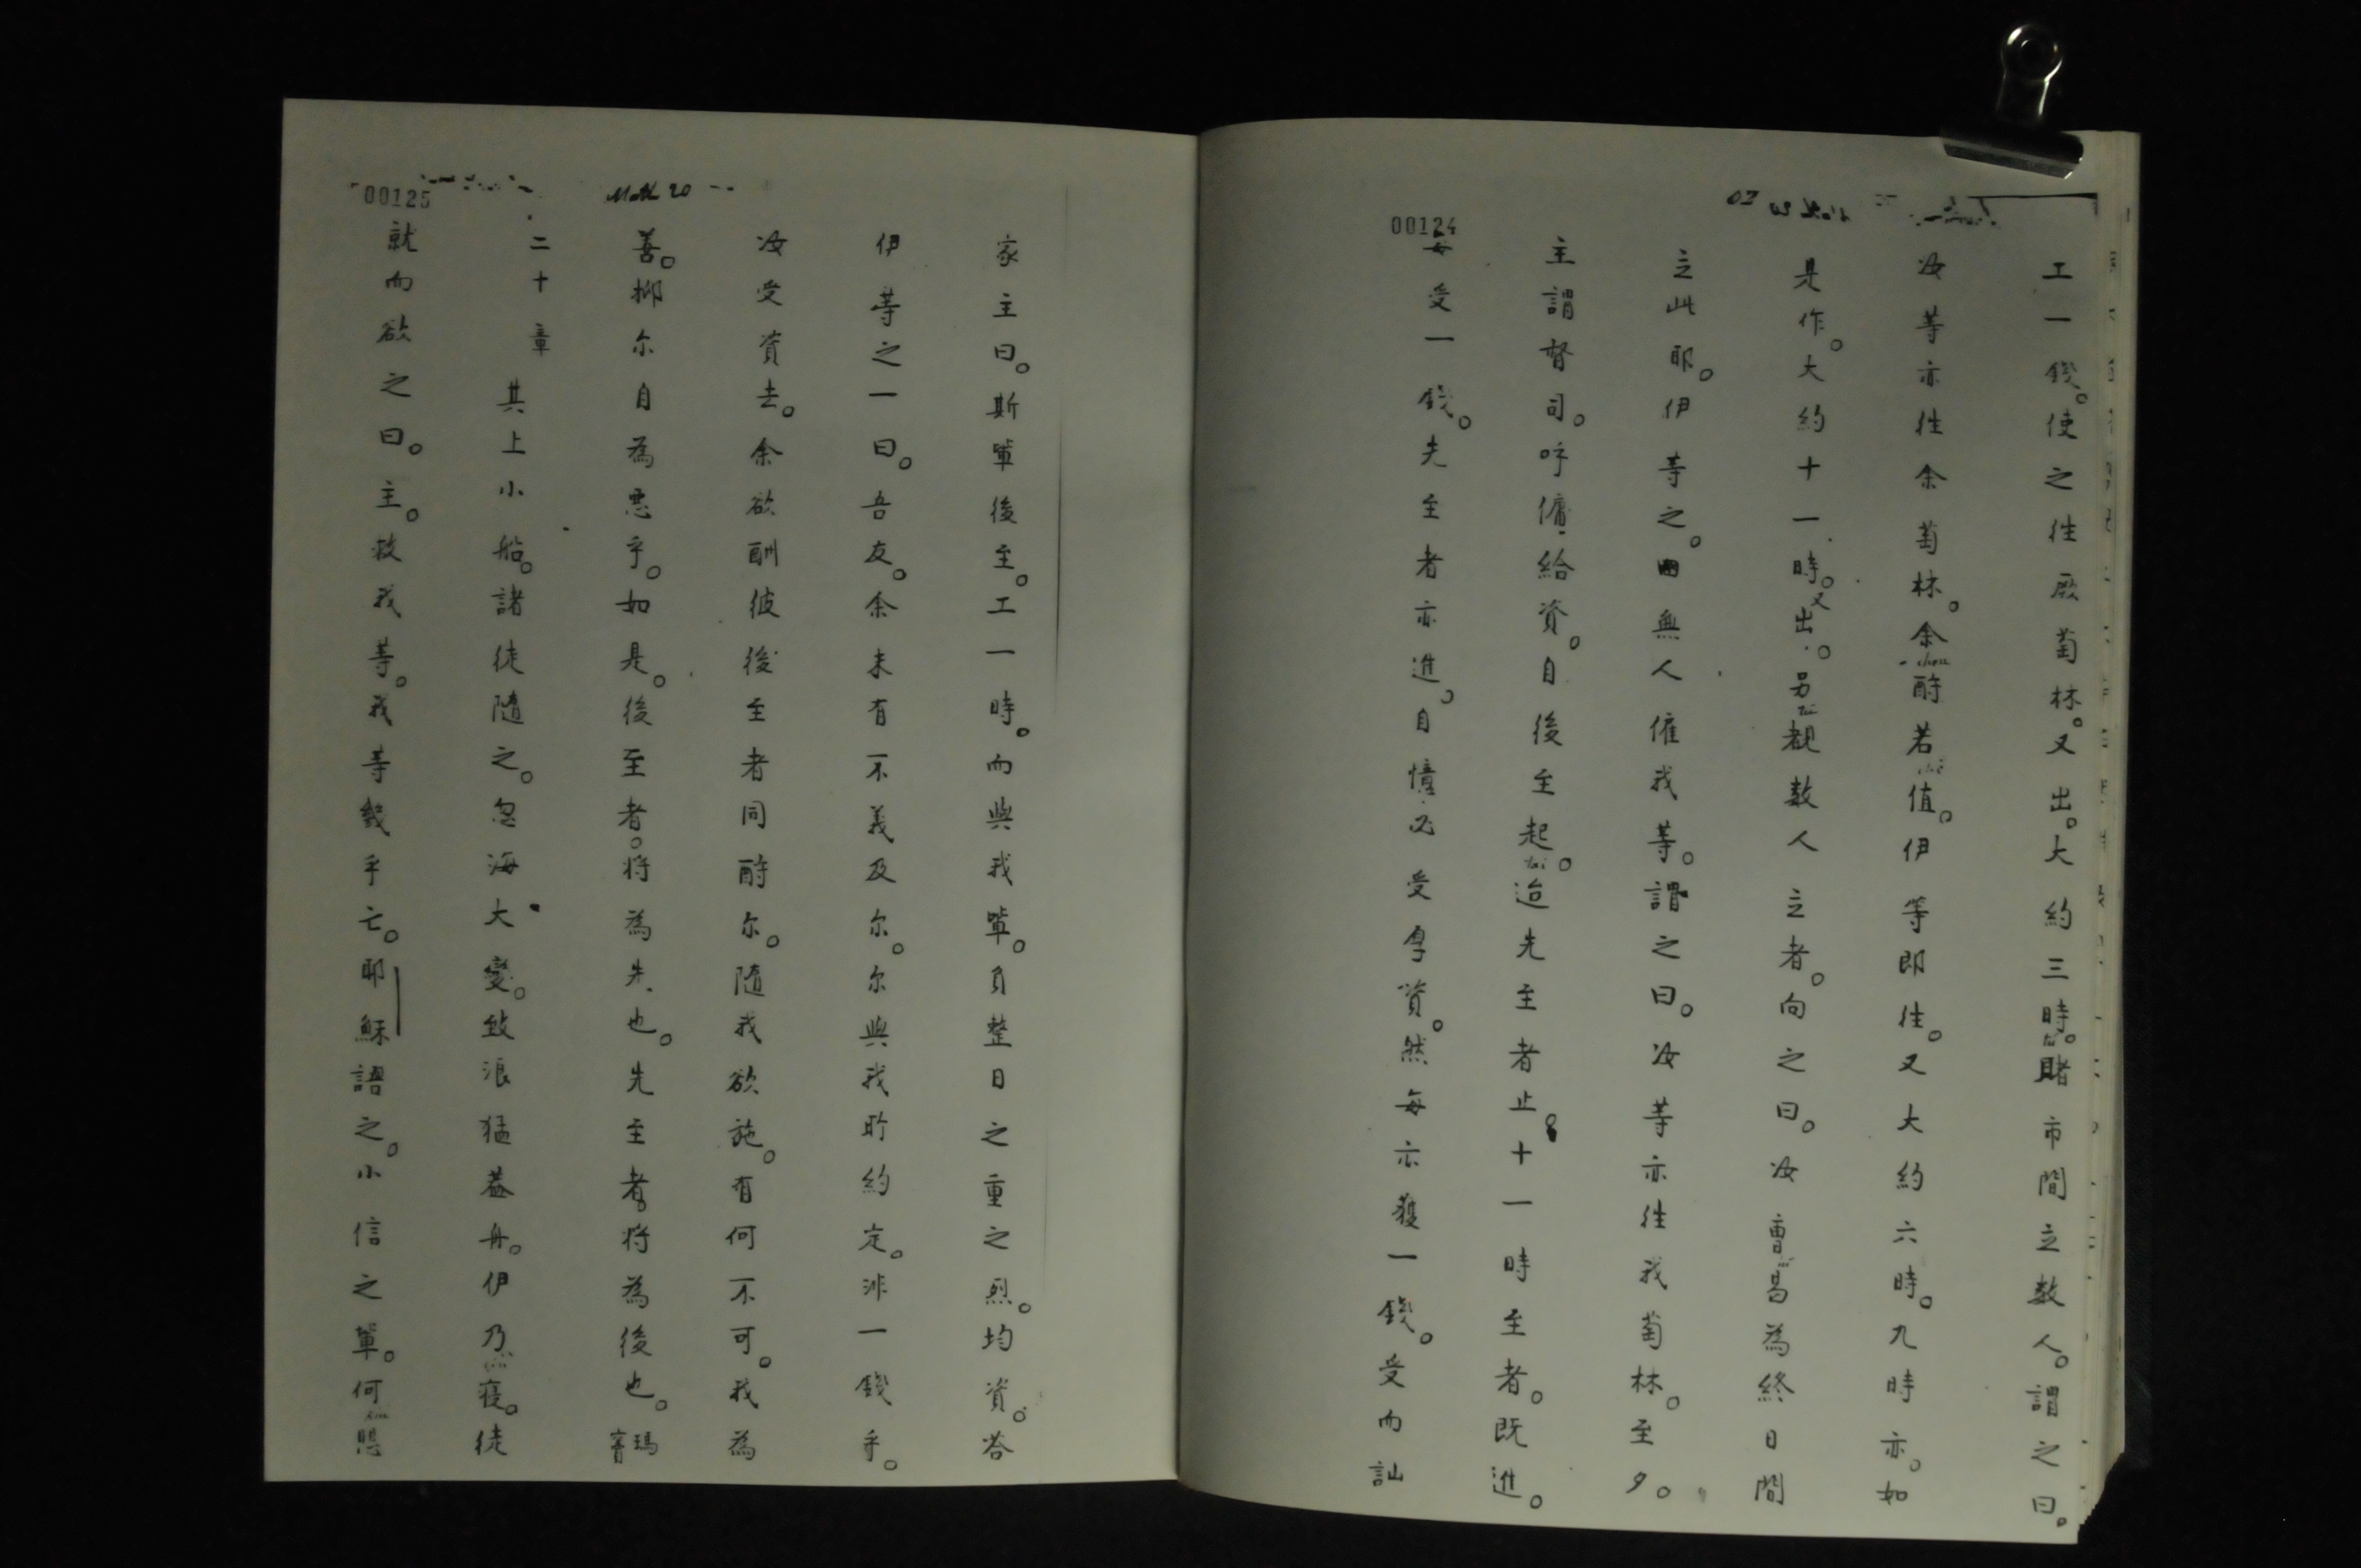 00124
工一錢。使之往厥萄林。又出。大約三時。睹市間立数人。謂之曰。
汝等亦往余萄林。余酧若值。伊等即往。又大約六時。九時亦。如
是作。大約十一時。又出。另覩数人立者。向之曰。汝曹曷為終日間
立此耶。伊等之曰無人僱我等。謂之曰。汝等亦往我萄林。至夕。
主謂督司。呼傭給資。自後至起。迨先至者止。十一時至者。既進。
每受一錢。先至者亦進。自憶必受厚資。然每亦獲一錢。受而訕
Math 20
00125
家主曰。斯軰後至。工一時。而與我軰。負整日之重之烈。均資。荅
伊等之一曰。吾友。余未有不義及尔。尔與我所約定。非一錢乎。
汝受資去。余欲酬彼後至者同酧尔。隨我欲施。有何不可。我為
善。抑尔自為悪乎。如是。後至者。将為先也。先至者。将為後也。瑪竇
二十章
其上小船。諸徒隨之。忽海大變。致浪猛葢舟。伊乃寢。徒
就而欲之曰。主。救我等。我等幾乎亡。耶穌語之。小信之軰。何